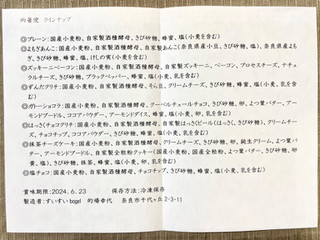 的場便 ラインナップ
◎プレーン:国産小麦粉、自家製酒種酵母、きび砂糖、蜂蜜、塩(小麦を含む)
◎よもぎあんこ:国産小麦粉、自家製酒種酵母、自家製あんこ(奈良県産小豆、きび砂糖、塩)、奈良県産よもぎ、きび砂糖、蜂蜜、塩、けしの実(小麦を含む)
◎ズッキーニベーコン:国産小麦粉、自家製酒種酵母、自家製ズッキーニ、ベーコン、プロセスチーズ、ナチュラルチーズ、きび砂糖、ブラックペッパー、蜂蜜、塩(小麦、乳を含む)
◎ずんだクリチ:国産小麦粉、自家製酒種酵母、そら豆、クリームチーズ、きび砂糖、蜂蜜、塩(小麦、乳を含む)
◎ガトーショコラ:国産小麦粉、自家製酒種酵母、クーベルチュールチョコ、きび砂糖、卵、よつ葉バター、アーモンドプードル、ココアパウダー、アーモンドダイス、蜂蜜、塩(小麦、卵、乳を含む)
◎はっさくチョコクリチ:国産小麦粉、自家製酒種酵母、自家製はっさくピール(はっさく、きび砂糖)、クリームチーズ、チョコチップ、ココアパウダー、きび砂糖、蜂蜜、塩(小麦、乳を含む)
◎抹茶チーズケーキ:国産小麦粉、自家製酒種酵母、クリームチーズ、きび砂糖、卵、純生クリーム、よつ葉バター、アーモンドプードル、自家製全粒粉クッキー(国産小麦粉、国産全粒粉、よつ葉バター、きび砂糖、卵、塩)、抹茶、蜂蜜、塩(小麦、卵、乳を含む)
◎塩チョコ:国産小麦粉、自家製酒種酵母、チョコチップ、きび砂糖、蜂蜜、塩(小麦、乳を含む)
賞味期限:2024.6.23 保存方法:冷凍保存
製造者:すいすいbagel 的場幸代 奈良市千代ヶ丘2-3-11